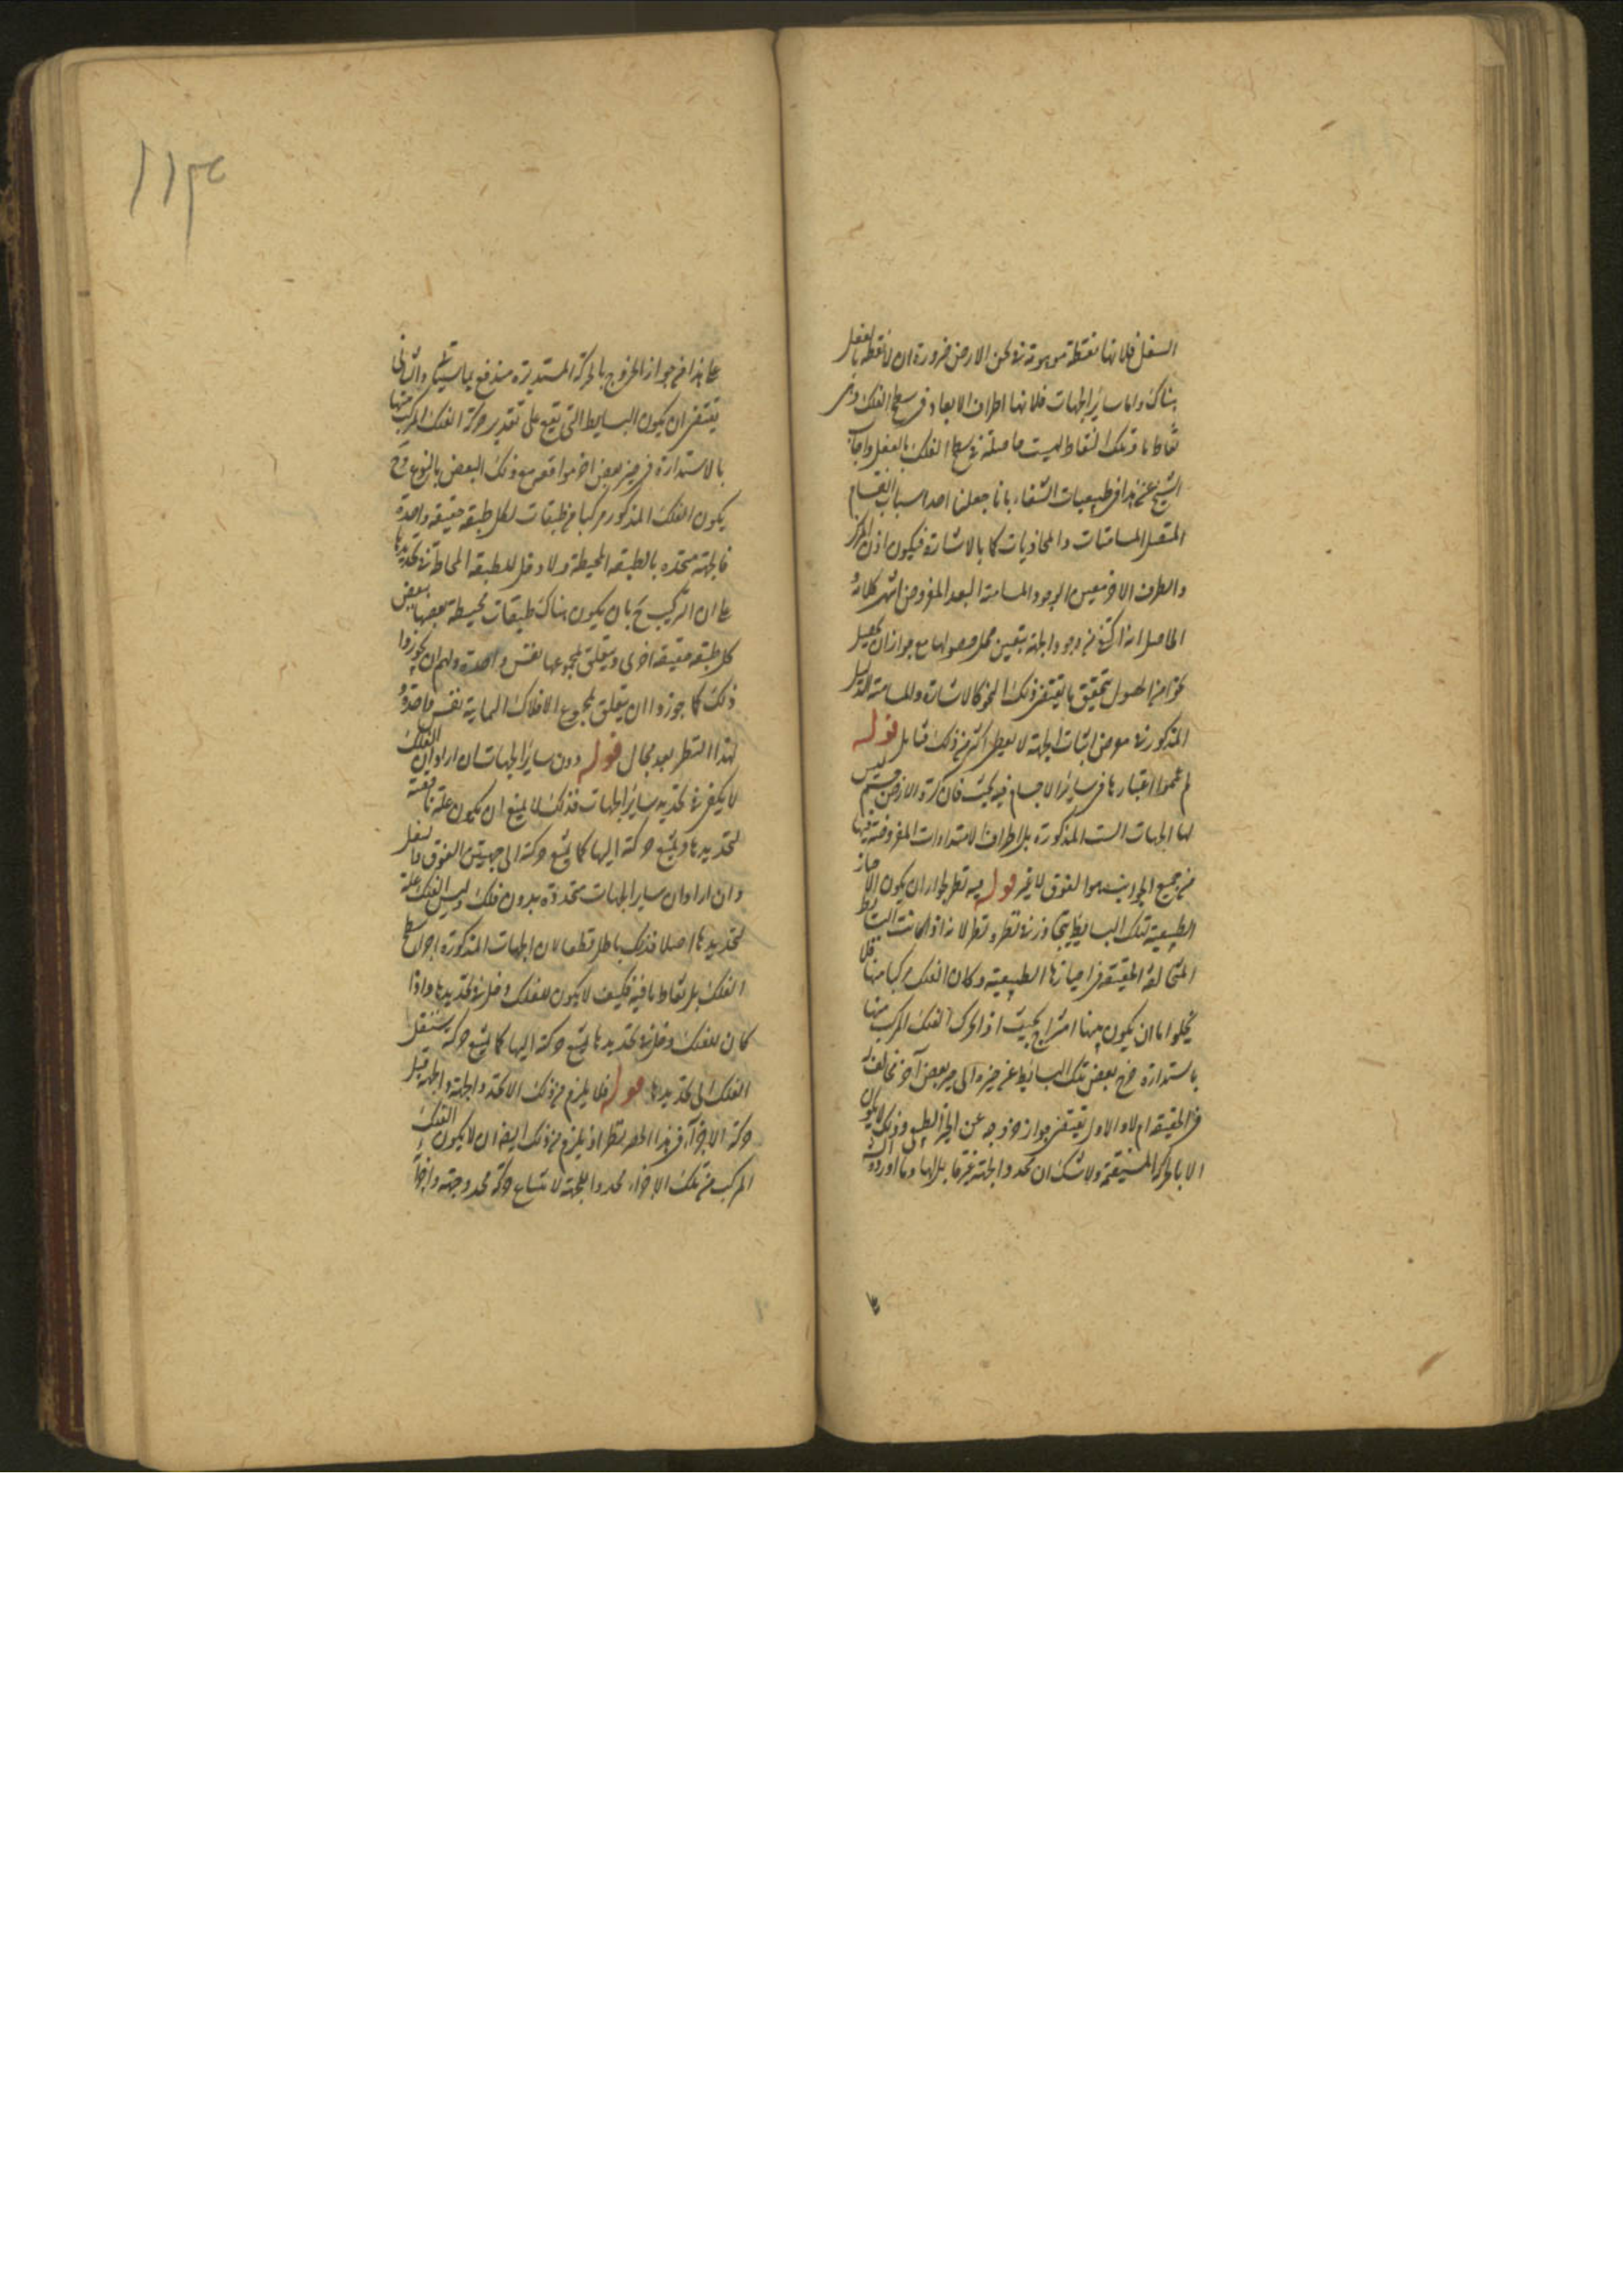 السفل فلانها نقطة موهومة فى ثخن الارض ضرورة ان لا نقطة بالفعل
هناك واما سائر الجهات فلانها اطراف الابعاد فى سطح الفلك وهى
نقاط ما وتلك النقاط ليست حاصلة فى سطح الفلك بالفعل واجاب
الشيخ عن هذا فى طبيعيات الشفاء بانا جعلنا احد اسباب انقسام
المتصل المسامتات والمحاذيات كما بالاشارة فيكون اذن المركز
والطرف الاخر معين الوجود المسامتة البعد المفروض انتهى كلامه
الحاصل انه اكتفى فى وجود الجهة بتعين محل حصولها مع جواز ان يحصل
نحوا من الحصول بتحقيق ما يقتضى ذلك النحو كالاشارة والمسامتة الدليل
المذكور فى معرض اثبات الجهة لا يعطى اكثر من ذلك فتأمل قوله
ثم عمموا اعتبارها فى سائر الاجسام فيه بحث فان كرة الارض ليس
لها الجهات الست المذكورة بل اطراف الامتدادات المفروضة فيها
من جميع الجوانب هو الفوق لا غير قوله فيه نظر لجواز ان يكون الاحياز
الطبيعية لتلك البسائط متجاوزة نظر ونظر لانه اذا كانت البسائط
المتخالفة الحقيقة فى احيازها الطبيعية وكان الفلك مركبا منها فلا
يخلو اما ان يكون بينها امتزاج بحيث اذا تحرك الفلك المركب منها
بالاستدارة خرج بعض تلك البسائط عن حيزه الى حيز بعض آخر مخالف له
فى الحقيقة ام لا والاول يقتضى جواز خروجه عن الحيز الطبيعى وذلك لا يكون
الا بالحركة المستقيمة ولا شك ان محدد الجهة غير قابل لها وما اورده
على هذا من جواز الخروج بالحركة المستديرة مندفع بما سيأتى والثانى
يقتضى ان يكون البسايط التى تقع على تقدير حركة الفلك المركب منها
بالاستدارة فى حيز بعض اخر موافق مع ذلك البعض بالنوع وح
يكون الفلك المذكور مركبا من طبقات لكل طبقة حقيقة واحدة
فالجهة متحددة بالطبقة المحيطة ولا دخل للطبقة المحاطة فى تحديدها
على ان التركيب ح بان يكون هناك طبقات محيطة بعضها ببعض
كل طبقة حقيقة اخرى ويتعلق بمجموعها نفس واحدة ولهم ان يجوزوا
ذلك كما جوزوا ان يتعلق بمجموع الافلاك السماوية نفس واحدة
لهذا النظر بعد مجال قوله دون سائر الجهات ان اراد ان الفلك
لا يكفى فى تحديد سائر الجهات فذلك لا يمنع ان يكون علة ناقصة
لتحديدها ويمتنع حركته اليها كما يمتنع حركته الى جهتى الفوق والسفل
وان اراد ان سائر الجهات متحددة بدون فلك وليس الفلك علة
لتحديدها اصلا فذلك باطل قطعا لان الجهات المذكورة اجزاء سطح
الفلك بل نقاط ما فيه فكيف لا يكون للفلك دخل فى تحديدها واذا
كان للفلك دخل فى تحديدها يمتنع حركته اليها كما يمتنع حركة مستقل
الفلك الى تحديدها قوله فلا يلزم من ذلك الا تحدد الجهة والجهة قبل
حركة الاجزاء فى هذا الحصر نظر اذ يلزم من ذلك ايضا ان لا يكون الفلك
المركب من تلك الاجزاء محددا للجهة لامتناع حركة محدد جهة واجزاء
۱۱۳